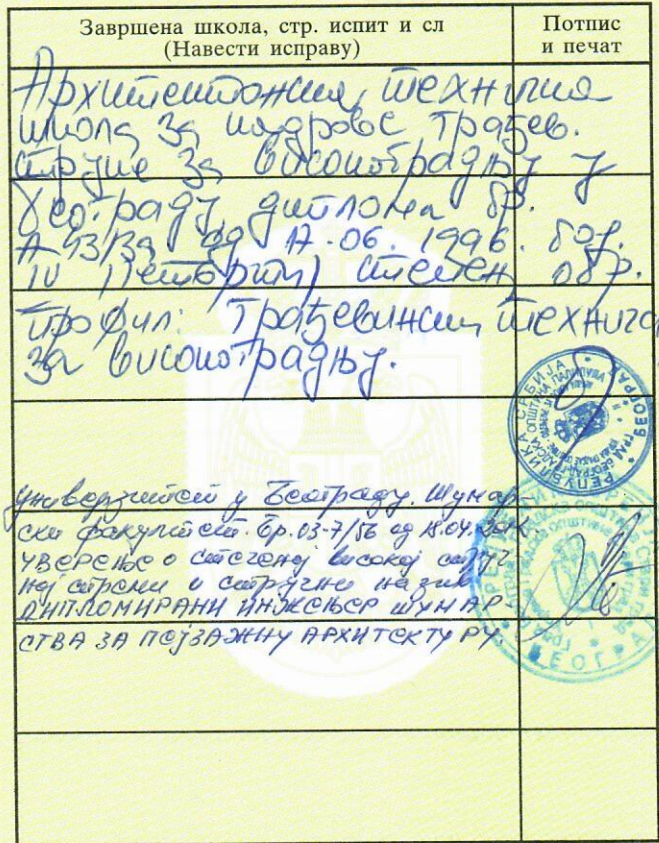 Завршена школа, стр. испит и сл
(Навести исправу)
Потпис
и печат
Архитектонска техничка
школа за кадрове грађев.
струке за високоградњу у
Београду, диплома бр.
од 17.06.1996. год.
IV (четврти) степен обр.
профил: Грађевински технича
за високоградњу.
РЕПУБЛИКА СРБИЈА
ГРАД БЕОГРАД
БЕОГРАД
Универзитет у Београду. Шумар-
ски факултет. бр. 03-7/56 од 18.04.
УВЕРЕЊЕ о стеченој високој струч-
ној спреми и стручни назив
ДИПЛОМИРАНИ ИНЖЕЊЕР ШУМАР-
СТВА ЗА ПЕЈЗАЖНУ АРХИТЕКТУРУ